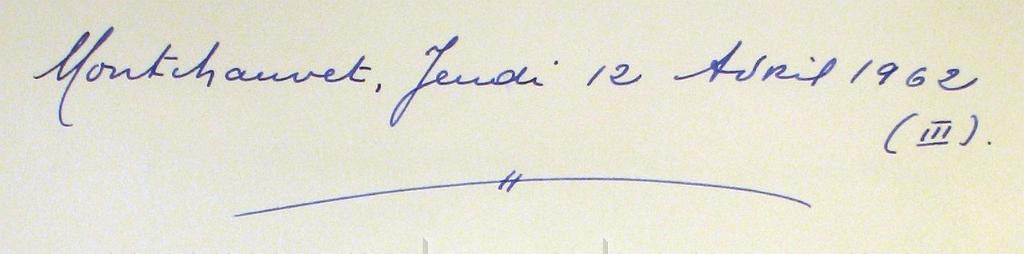 Montchauvet, Jeudi 12 Avril 1962
(III).